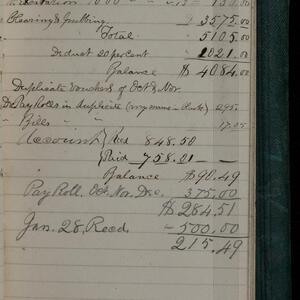 1000
Clearing & Grubbing 3575.00
Total 5105.00
Deduct 20 percent 1021.00
Balance $ 4084.00
Duplicate Vouchers of Oct & Nov.
Pay Rolls in duplicate 295
Bills 17.05
Account Recd 848.50
Paid 758.01
Balance $90.49
Pay Roll. Oct. Nov. Dec. 375.00
$284.51
Jan. 28. Recd 500.00
215.49